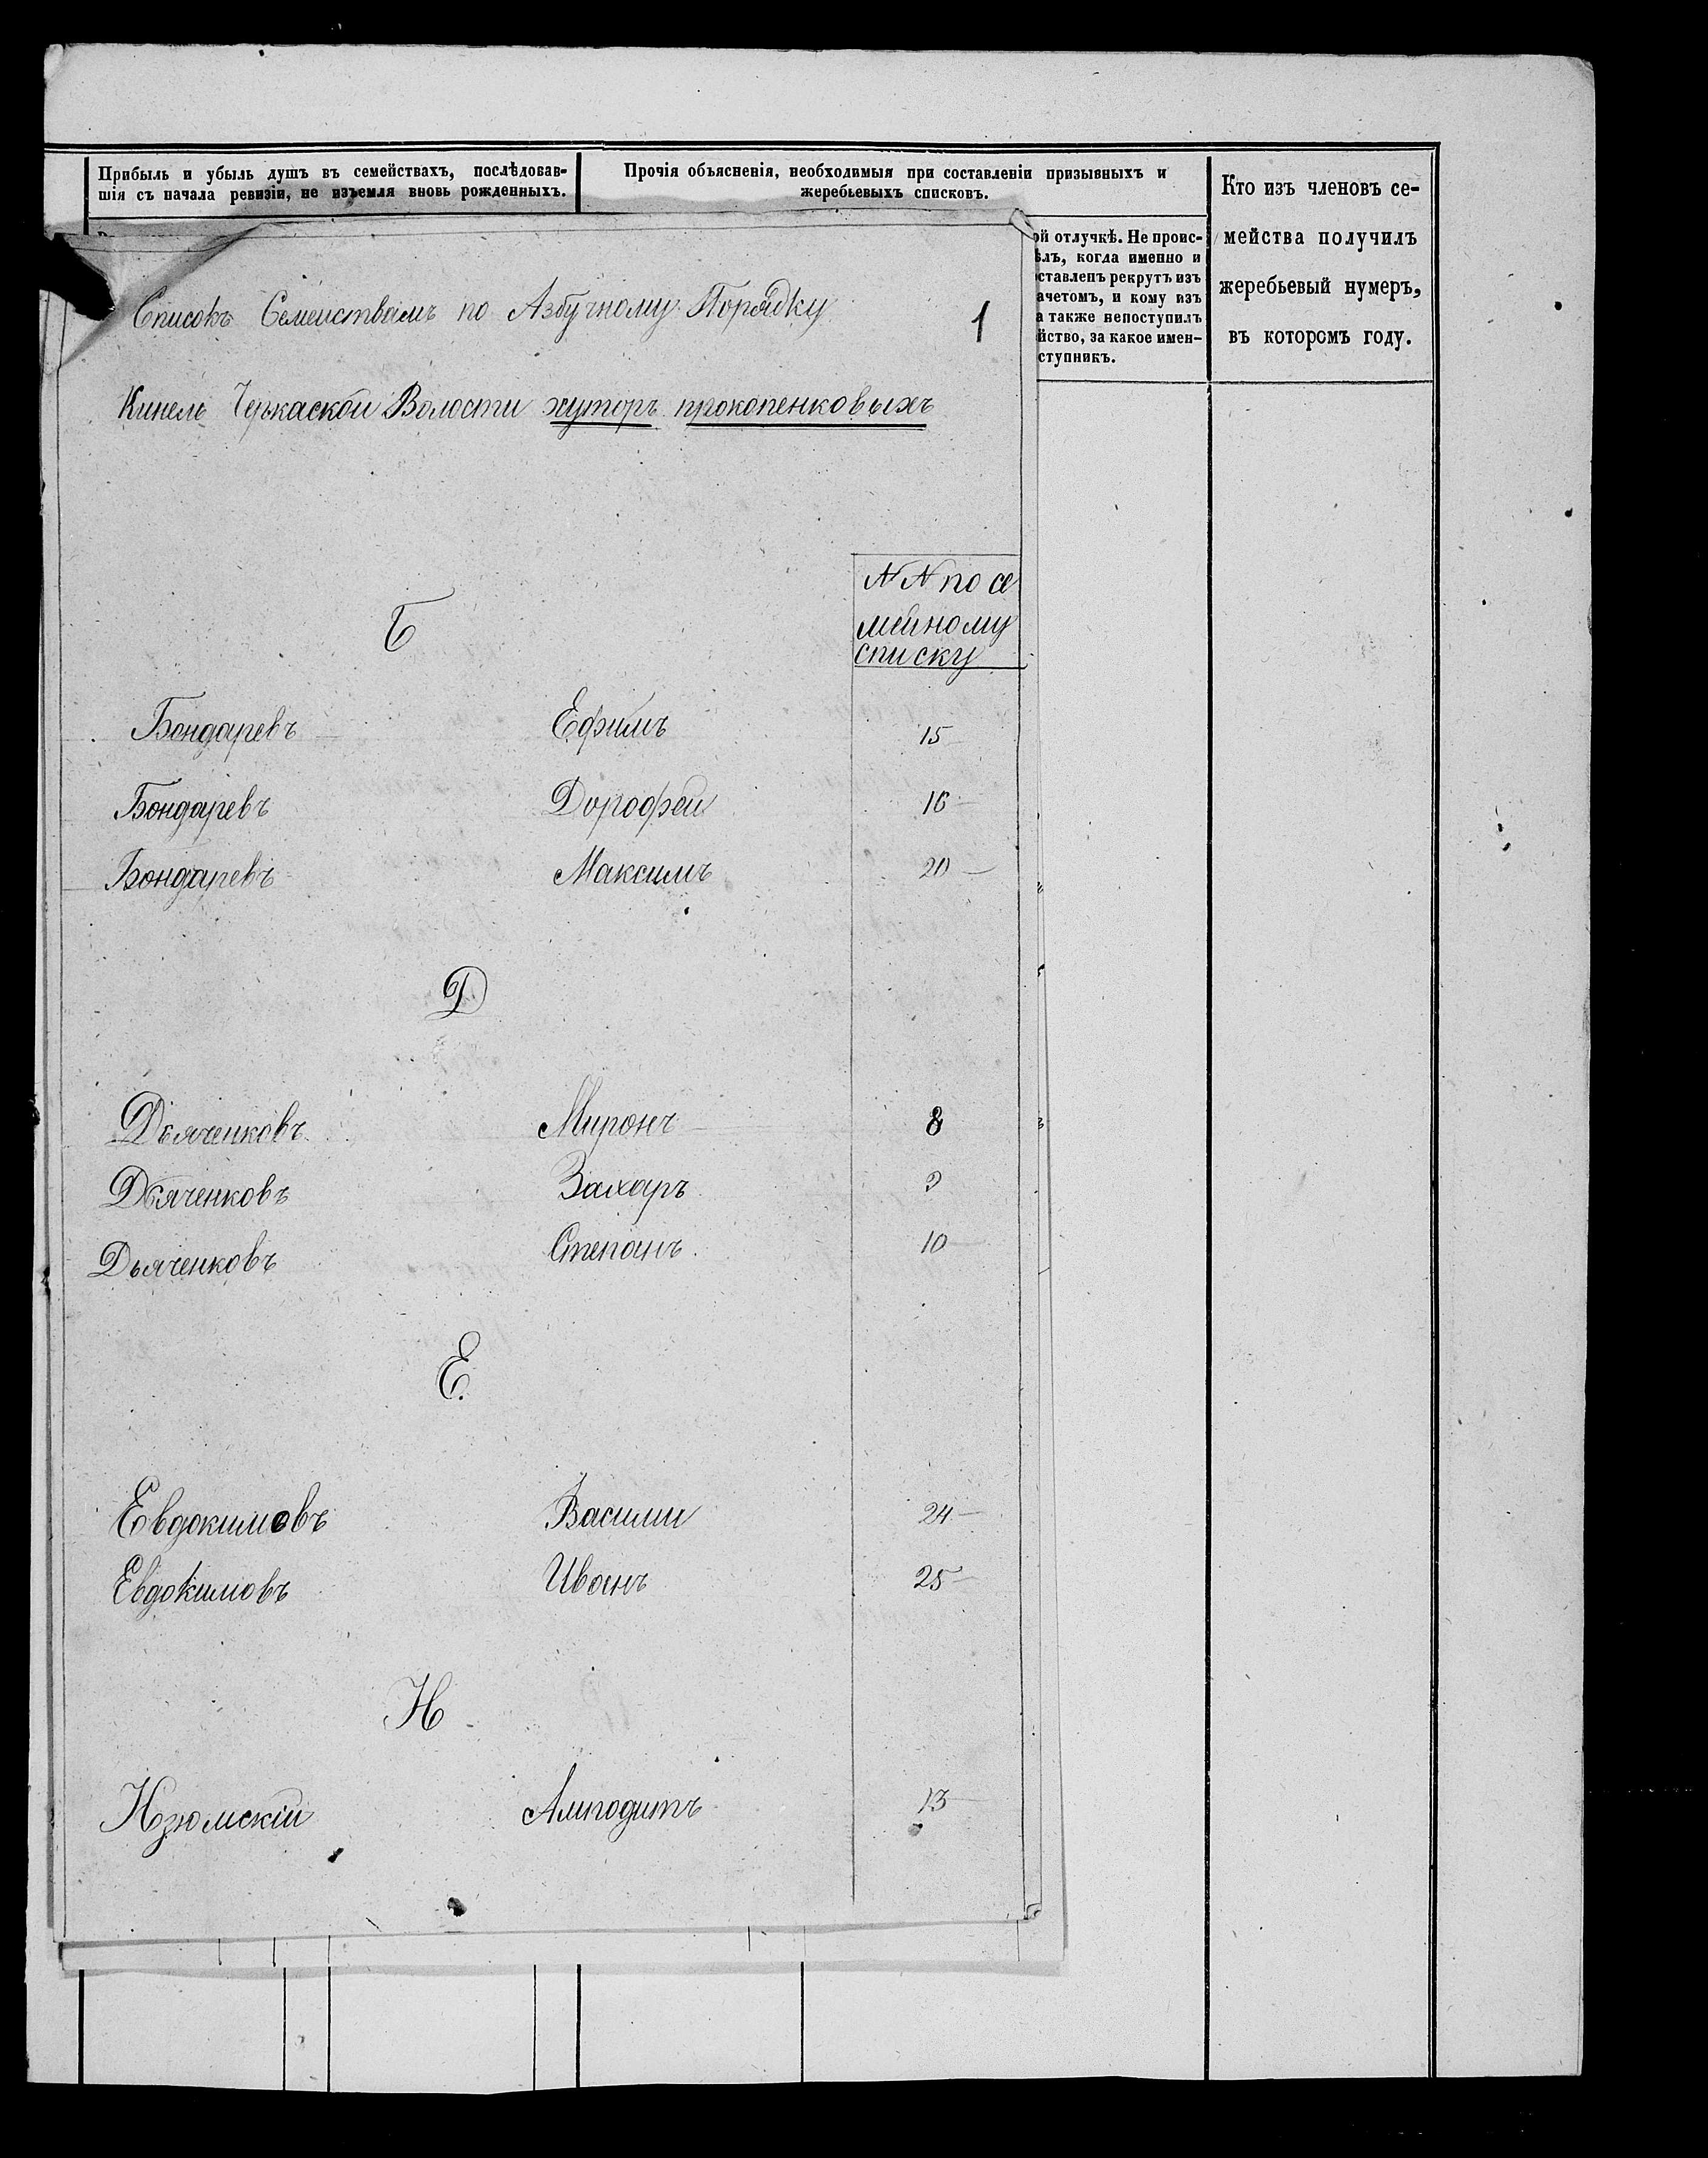 Прибыль и убыль душъ въ семействахъ, послѣдовав-
шія съ начала ревизіи, не изъемля вновь рожденныхъ.
Прочія объясненія, необходимыя при составленіи призывныхъ и
жеребьевыхъ списковъ.
ой отлучкѣ. Не проис-
ѣлъ, когда именно и
оставленъ рекрутъ изъ
ачетомъ, и кому изъ
а также непоступилъ
йство, за какое имен-
ступникъ.
Кто изъ членовъ се-
мейства получилъ
жеребьевый нумеръ,
въ которомъ году.
Списокъ Семеиствамъ по Азбучному Порядку
1
Кинель Черкаской Волости хуторъ прокопенковыхъ
N N по се
мейному
списку
Б
Бондаревъ Ефимъ 15
Бондаревъ Дорофеи 16
Бондаревъ Максимъ 20
Д
Дьяченковъ Миронъ 8
Дьяченковъ Захаръ 9
Дьяченковъ Степанъ 10
Е
Евдокимовъ Васили 24
Евдокимовъ Иванъ 25
И
Изюмскій Амподитъ 13